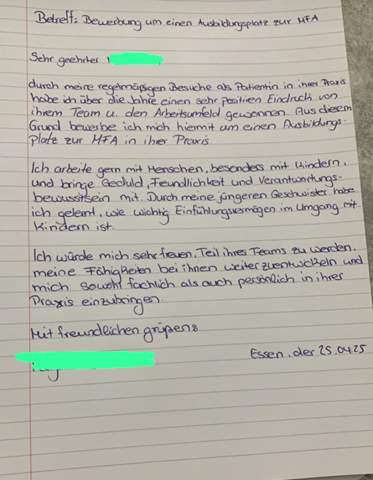 Betreff: Bewerbung um einen Ausbildungsplatz zur MFA
Sehr geehrter
durch meine regelmäßigen Besuche als Patientin in ihrer Praxis
habe ich über die Jahre einen sehr positiven Eindruck von
ihrem Team u. den Arbeitsumfeld gewonnen. Aus diesem
Grund bewerbe ich mich hiermit um einen Ausbildungs-
platz zur MFA in ihrer Praxis.
Ich arbeite gern mit Menschen, besonders mit Kindern,
und bringe Geduld, Freundlichkeit und Verantwortungs-
bewusstsein mit. Durch meine jüngeren Geschwister habe
ich gelernt, wie wichtig Einfühlungsvermögen im Umgang mit
Kindern ist.
Ich würde mich sehr freuen, Teil ihres Teams zu werden,
meine Fähigkeiten bei ihnen weiter zuentwickeln und
mich sowohl fachlich als auch persönlich in ihrer
Praxis einzubringen.
Mit freundlichen grüßen
Essen, der 25.04.25